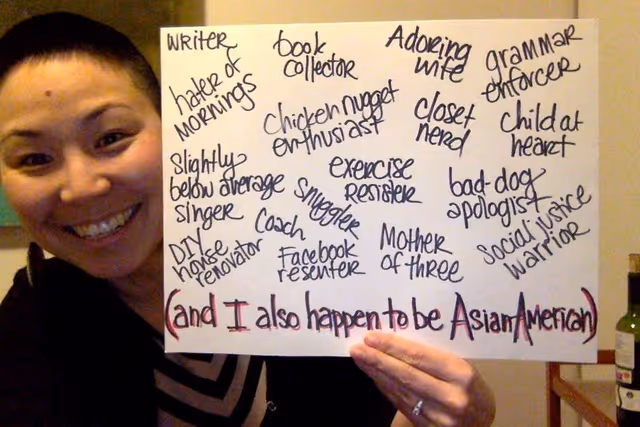 writer
book
collector
Adoring
wife
grammar
enforcer
hater of
mornings
chicken nugget
enthusiast
closet
nerd
child at
heart
slightly
below average
singer
exercise
resister
Snuggler
bad-dog
apologist
Coach
DIY
house
renovator
Facebook
resenter
Mother
of three
social justice
warrior
(and I also happen to be Asian American)